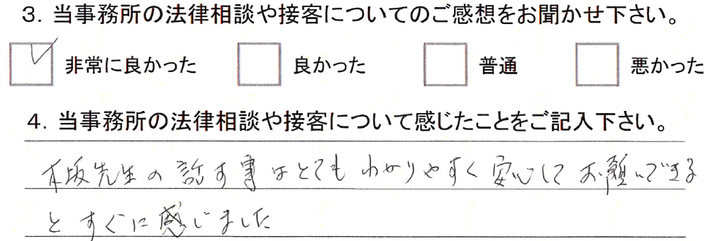 3. 当事務所の法律相談や接客についてのご感想をお聞かせ下さい。
非常に良かった 良かった 普通 悪かった
4. 当事務所の法律相談や接客について感じたことをご記入下さい。
本坂先生の話す事はとてもわかりやすく安心してお願いできる
とすぐに感じました